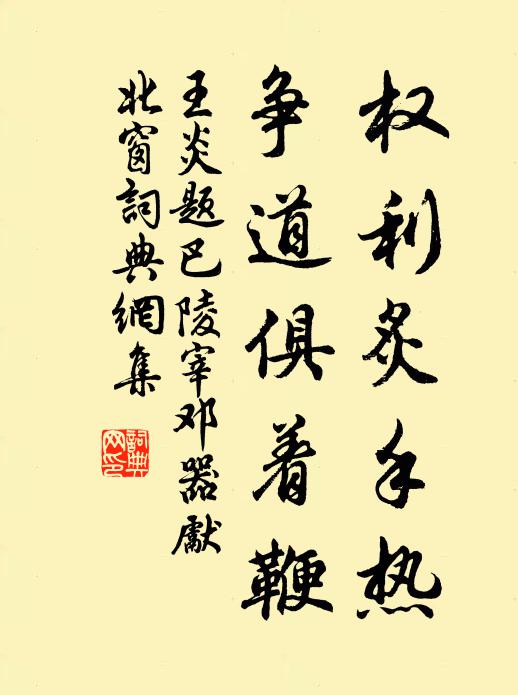 权利炙手热
争道俱着鞭
王炎题巴陵宰邓器献
北窗詞典網集
詞典
网印